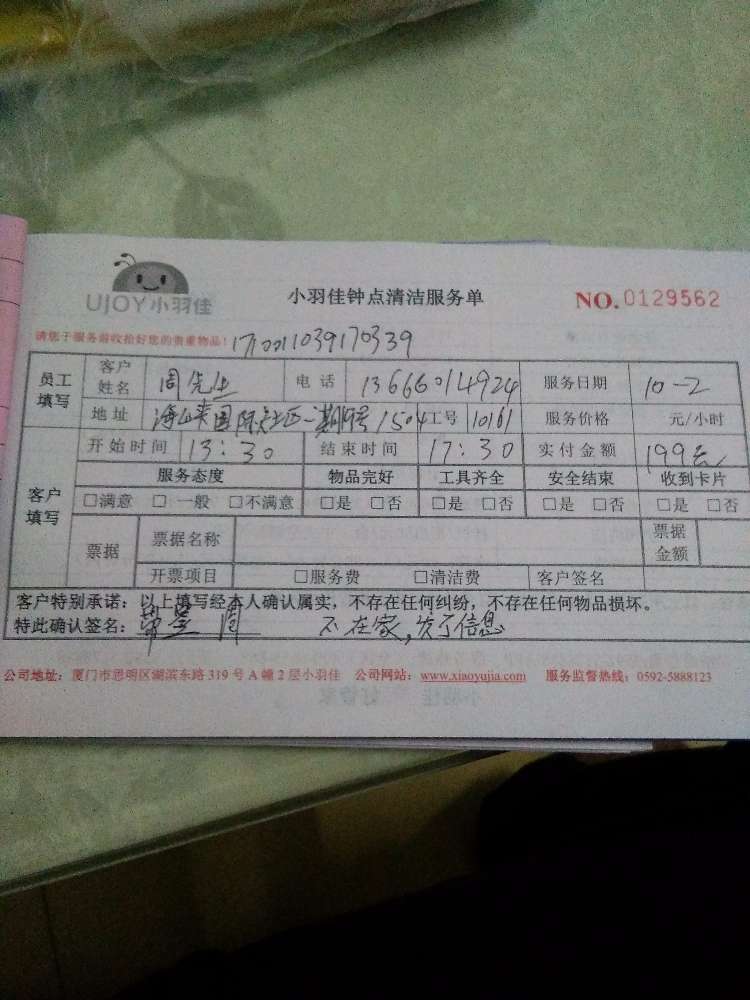 UJOY小羽佳
小羽佳钟点清洁服务单
NO.0129562
请您于服务前收拾好您的贵重物品!
171001103917033９
员工填写 客户姓名 周先生 电话 13666014924 服务日期 10-2
地址 海峡国际社区一期 1504 工号 10161 服务价格 元/小时
客户填写 开始时间 13:30 结束时间 17:30 实付金额 199元
服务态度 物品完好 工具齐全 安全结束 收到卡片
□满意 □一般 □不满意 □是 □否 □是 □否 □是 □否 □是 □否
票据 票据名称 票据金额
开票项目 □服务费 □清洁费 客户签名
客户特别承诺:以上填写经本人确认属实,不存在任何纠纷,不存在任何物品损坏。
特此确认签名: 不在家,发了信息
公司地址:厦门市思明区湖滨东路319号A幢2层小羽佳 公司网站:www.xiaoyujia.com 服务监督热线:0592-5888123